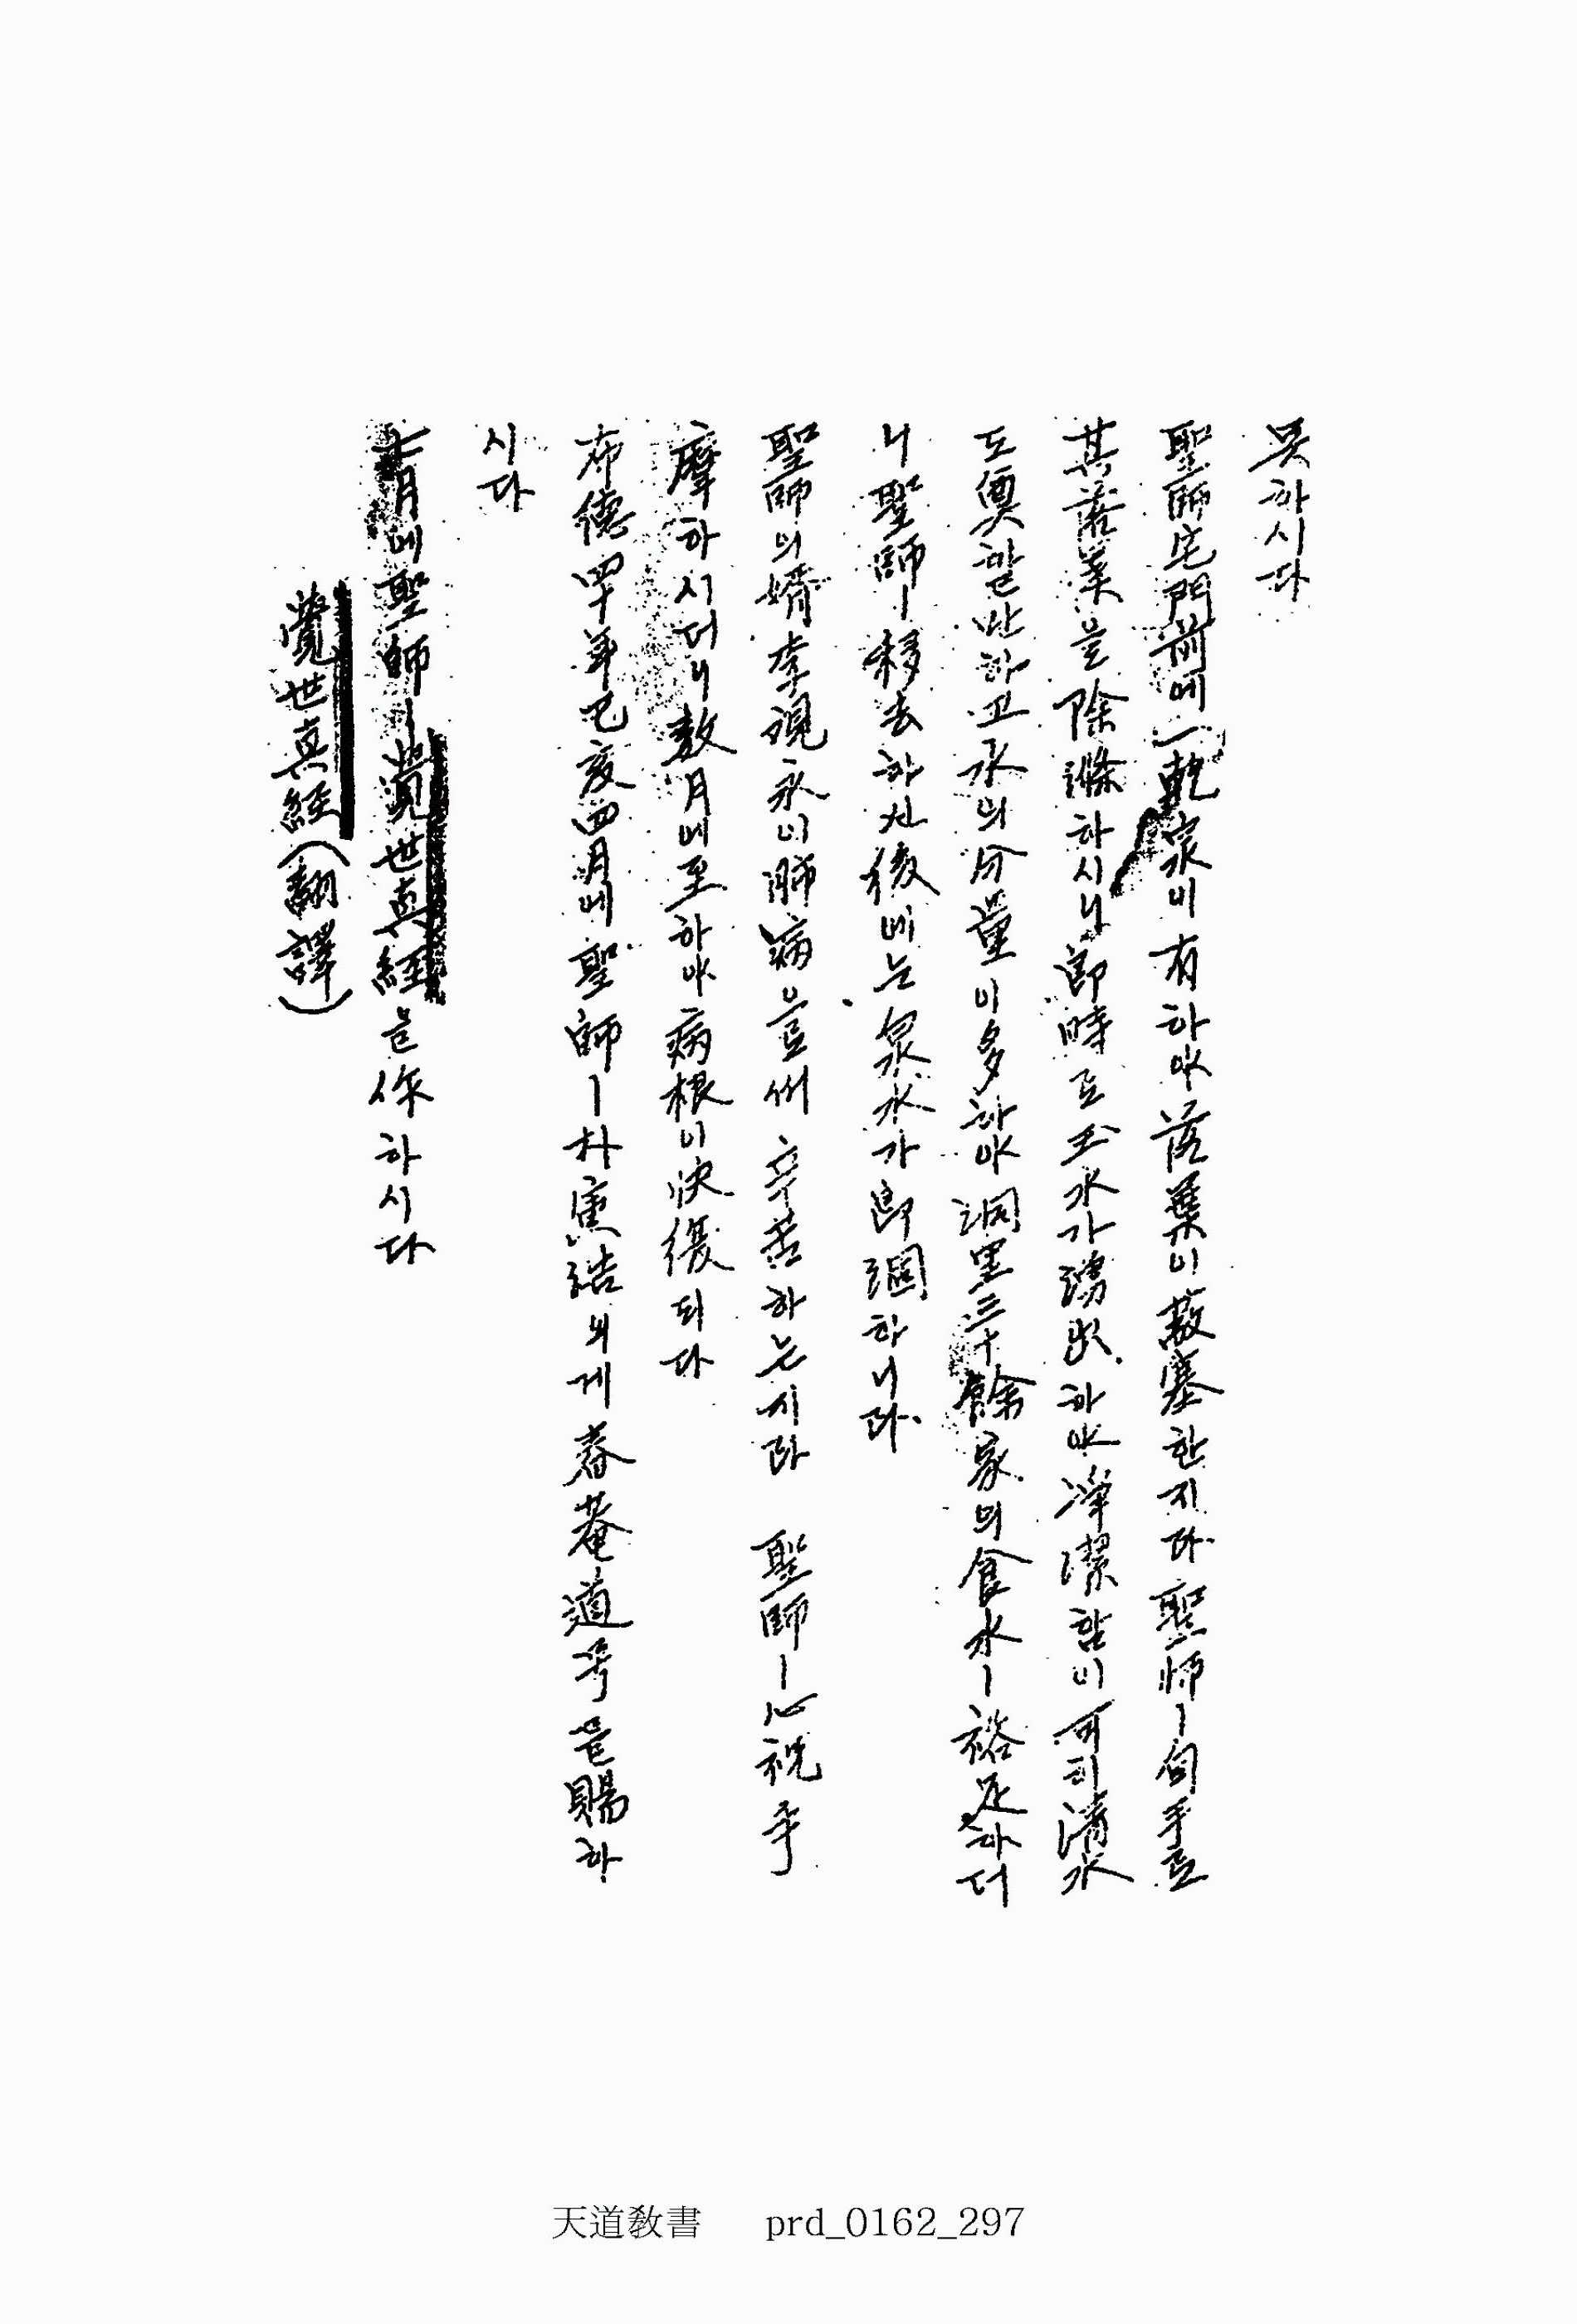 못하시다
聖師宅門前에 一乾泉이 有하야 落葉이 蔽塞한지라 聖師ㅣ 自手로
其落葉을 除滌하시니 卽時로 玉水가 湧出하야 淨潔함이 可히 淸水
도 奠할만하고 水의 分量이 多하야 洞里三十餘家의 食水ㅣ 裕足하더
니 聖師ㅣ 移去하신 後에는 泉水가 卽涸하니라
聖師의 婿 李現永이 肺病으로써 辛苦하는지라 聖師ㅣ 心祝手
摩하시더니 數月에 至하야 病根이 快復되다
布德四十年己亥四月에 聖師ㅣ 朴寅浩의게 春菴道号를 賜하
시다
七月에 聖師ㅣ 覺世眞經을 作하시다
覺世眞經(翻譯)
天道敎書 prd_0162_297